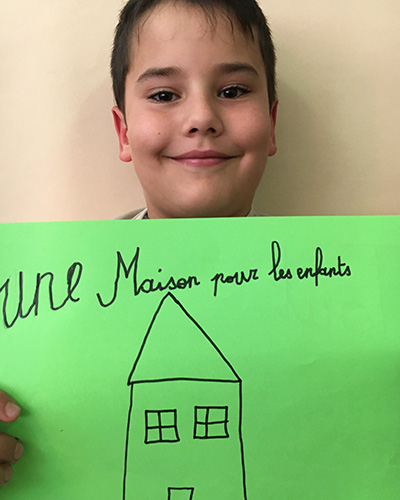 une Maison pour les enfants